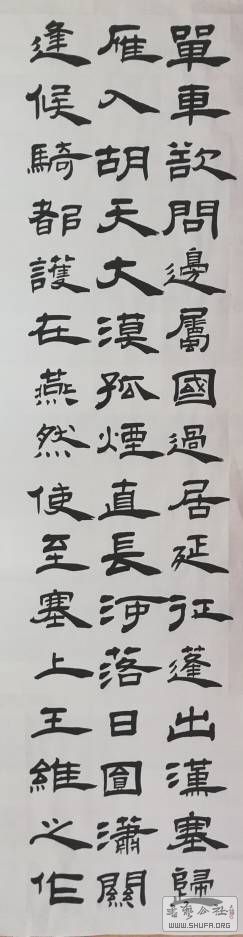 單車欲問邊屬國過居延征蓬出漢塞歸
雁入胡天大漠孤煙直長河落日圓瀟關
逢候騎都護在燕然使至塞上王維之作
書藝公社
WWW.SHUFA.ORG